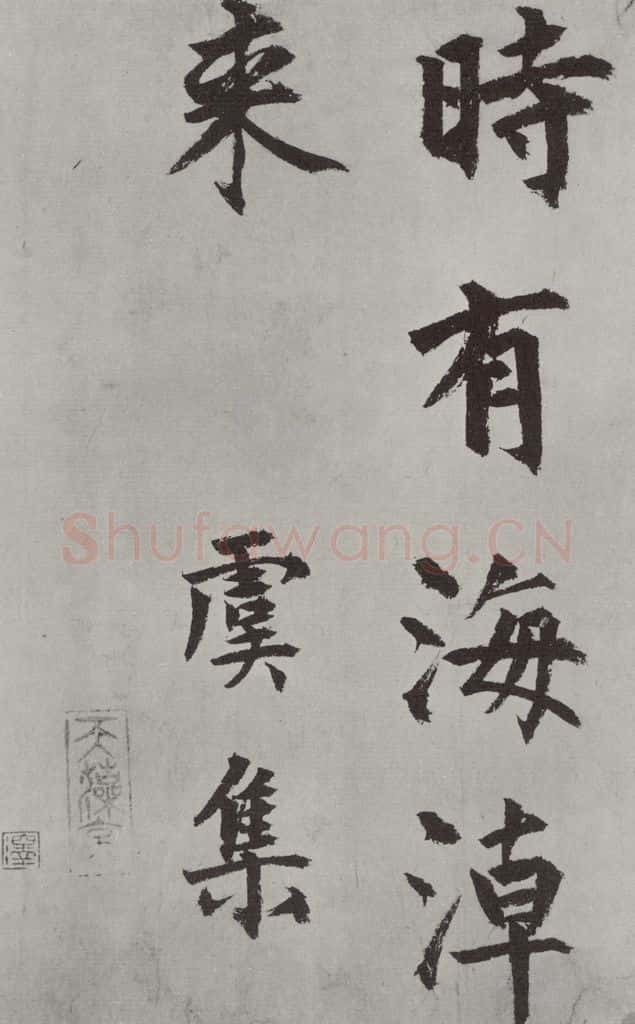 時有海淖
來
虞集
Shufawang.CN